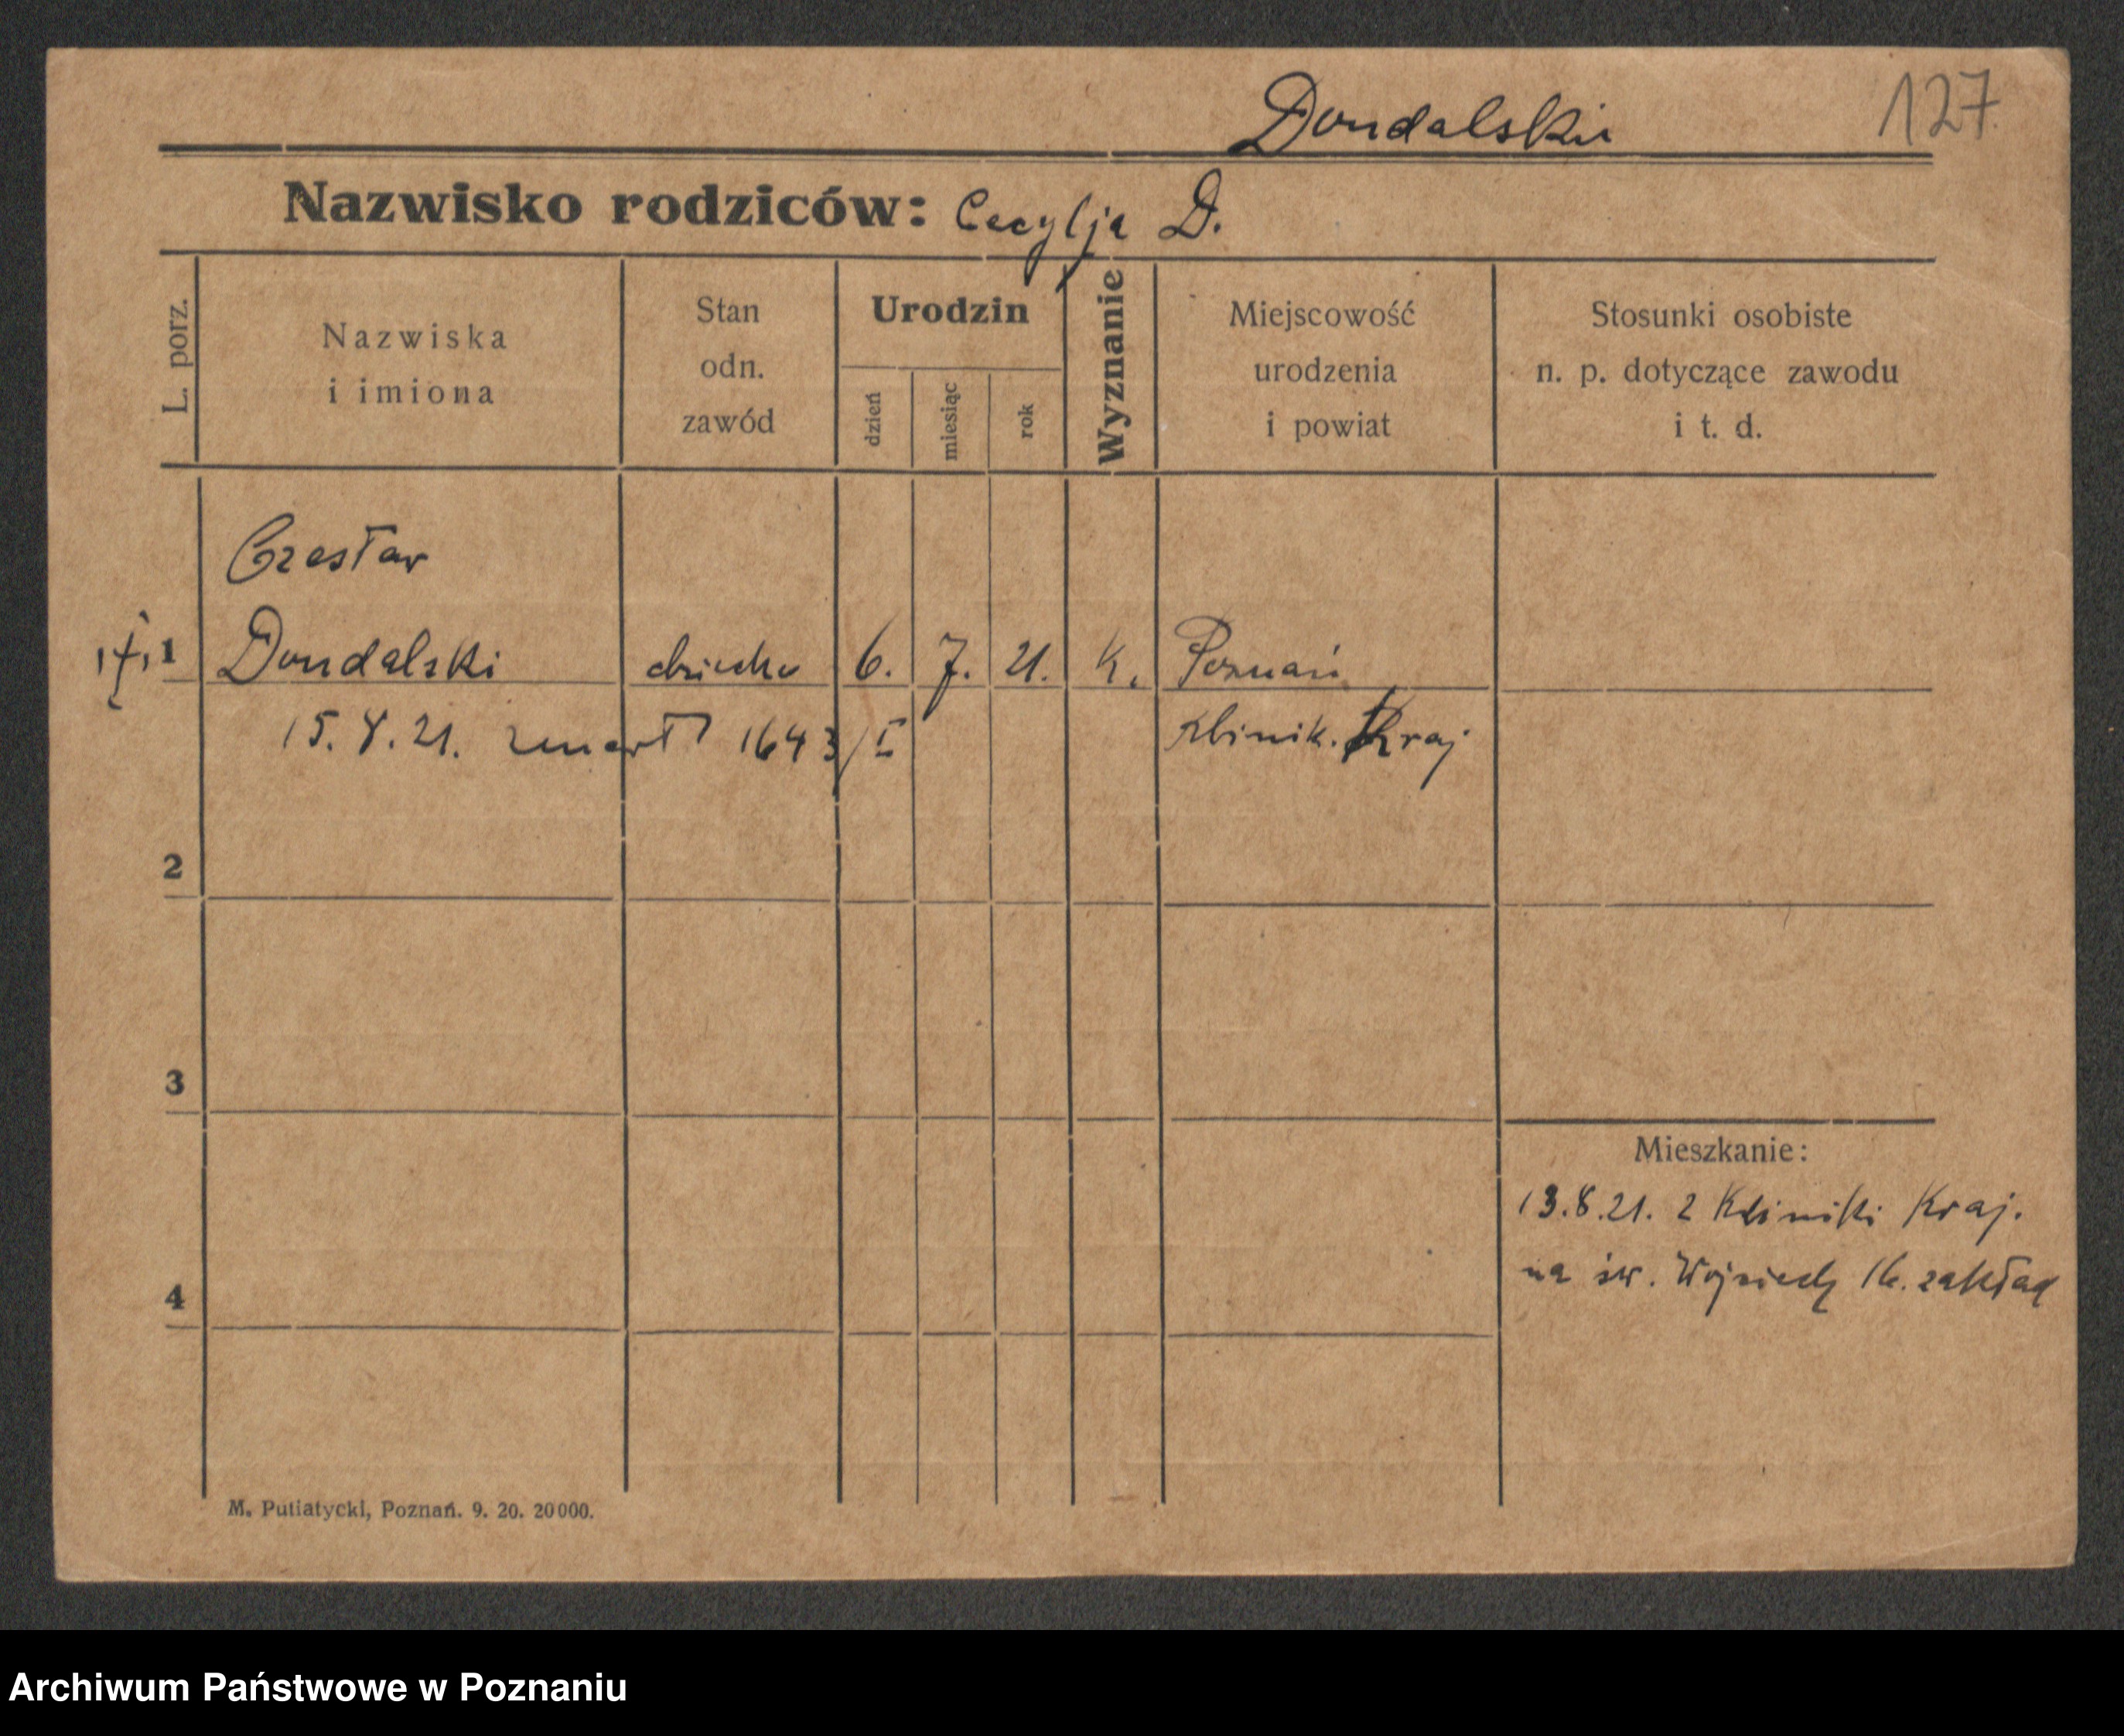 Dondalski
127.
Nazwisko rodziców: Cecylja D.
L. porz.
Nazwiska
i imiona
Stan
odn.
zawód
Urodzin
dzień
miesiąc
rok
Wyznanie
Miejscowość
urodzenia
i powiat
Stosunki osobiste
n. p. dotyczące zawodu
i t. d.
Czesław
1 Dondalski dziecko 6. 7. 21. k. Poznań
15. 8. 21. zmarł 1643/I klinik. Kraj
2
3
4
Mieszkanie:
13.8.21. z Kliniki Kraj.
na św. Wojciech 16. zakład
M. Putiatycki, Poznań. 9. 20. 20000.
Archiwum Państwowe w Poznaniu